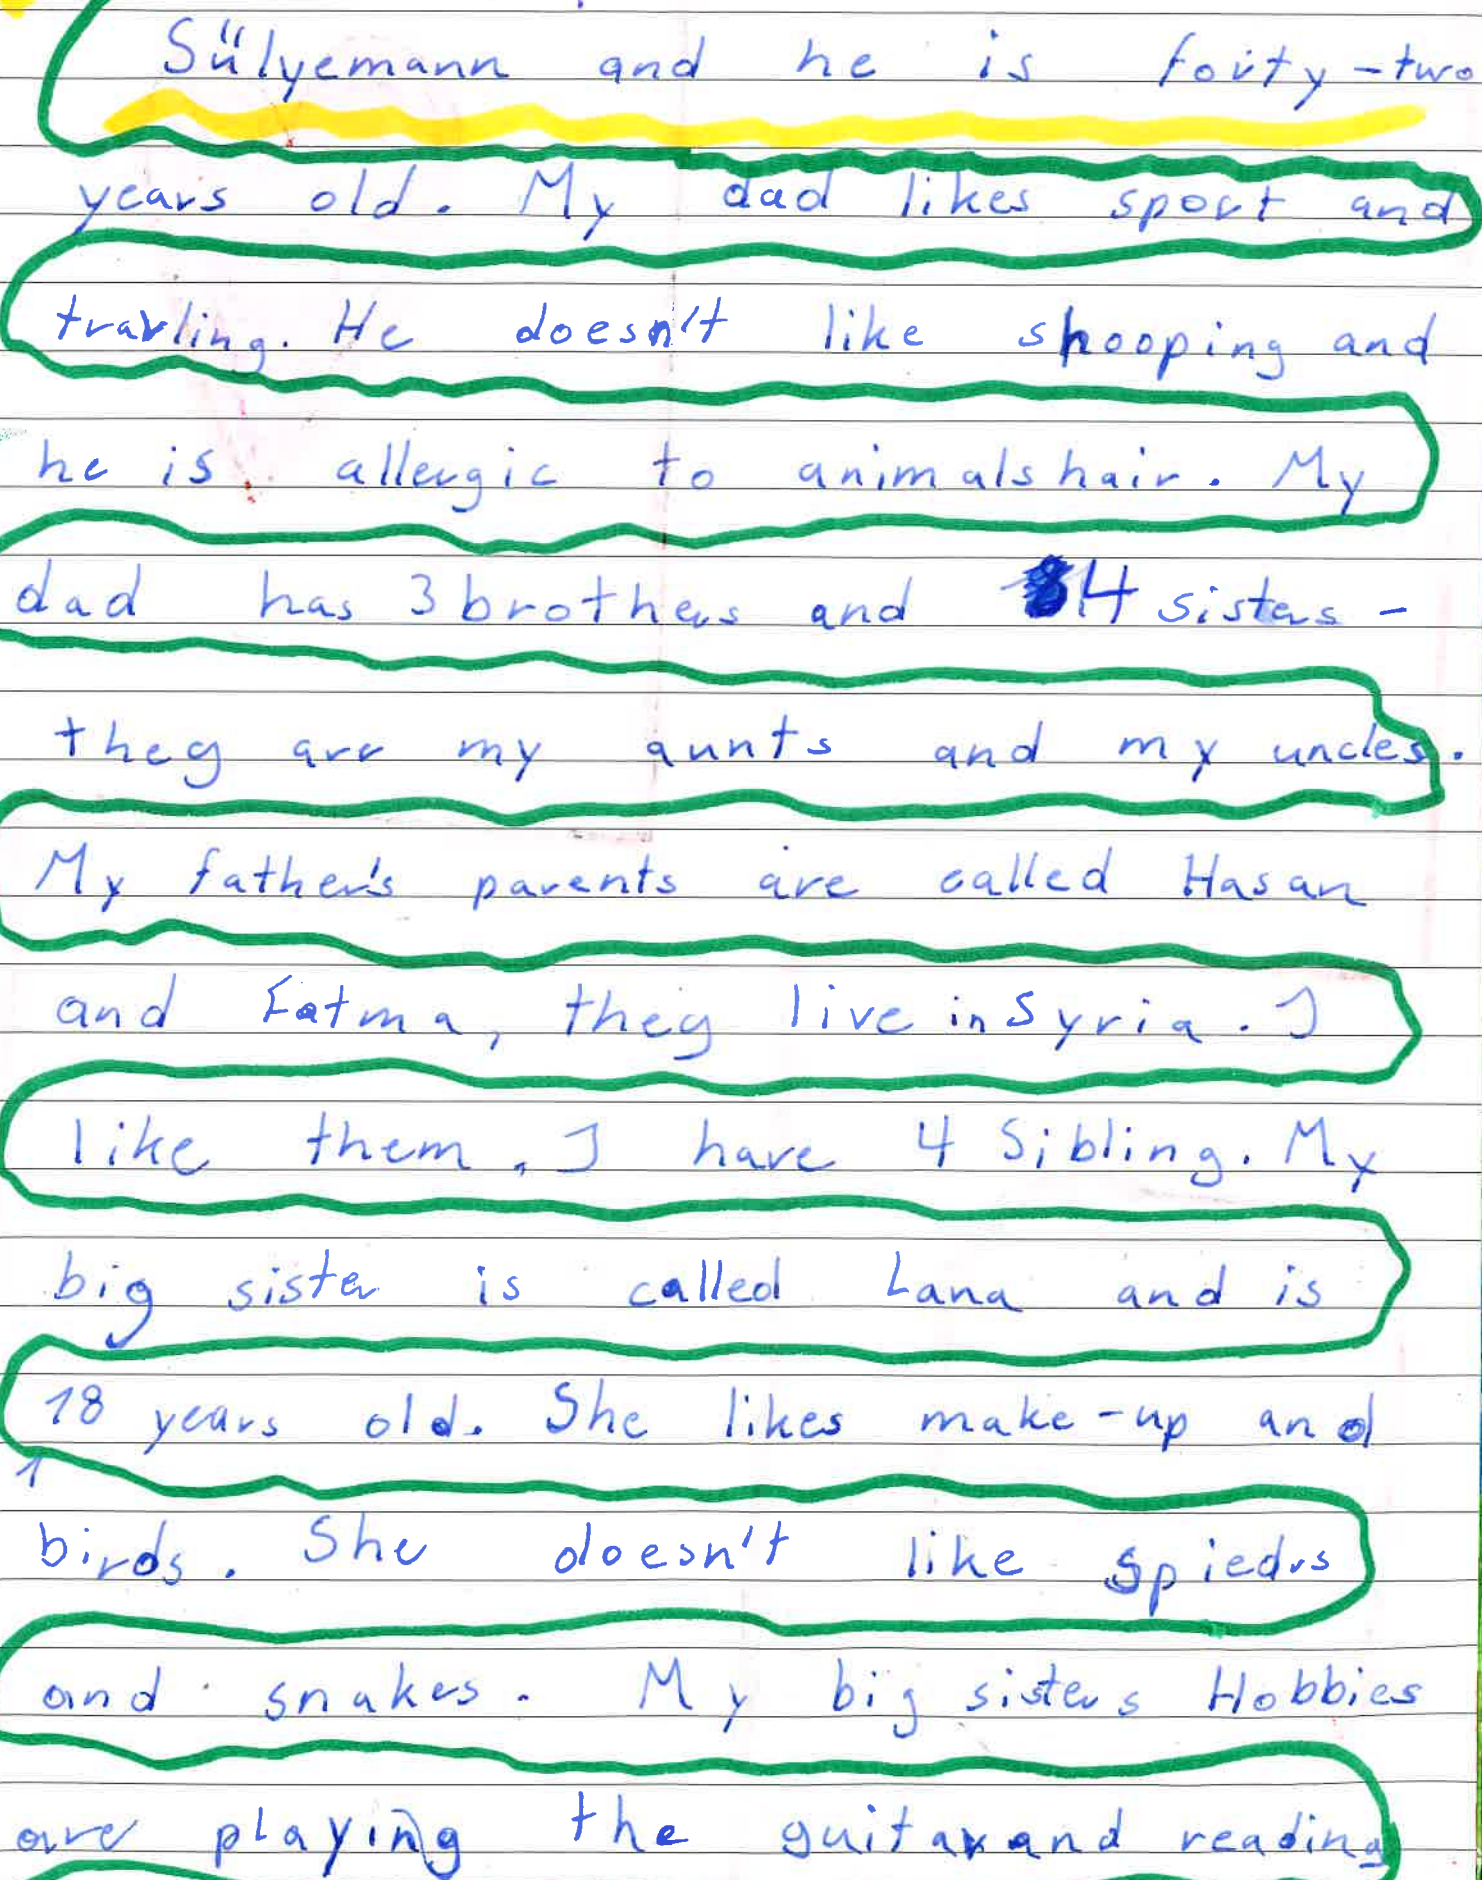 Sülyemann and he is forty-two
years old. My dad likes sport and
travling. He doesn't like shooping and
he is allergic to animals hair. My
dad has 3 brothers and 4 sisters -
they are my aunts and my uncles.
My father's parents are called Hasan
and Fatma, they live in Syria. I
like them. I have 4 Sibling. My
big sister is called Lana and is
18 years old. She likes make-up and
birds. She doesn't like spieders
and snakes. My big sisters Hobbies
are playing the guitar and reading